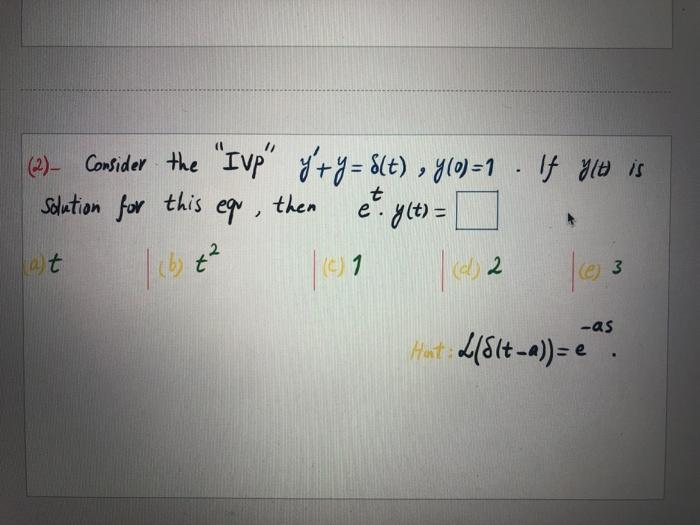 (2)- Consider the "IVP" y'+y = δ(t) , y(0)=1 . If y(t) is
Solution for this eqn , then e^t. y(t) = □
(a) t (b) t² (c) 1 (d) 2 (e) 3
Hint: L(δ(t-a)) = e^-as .